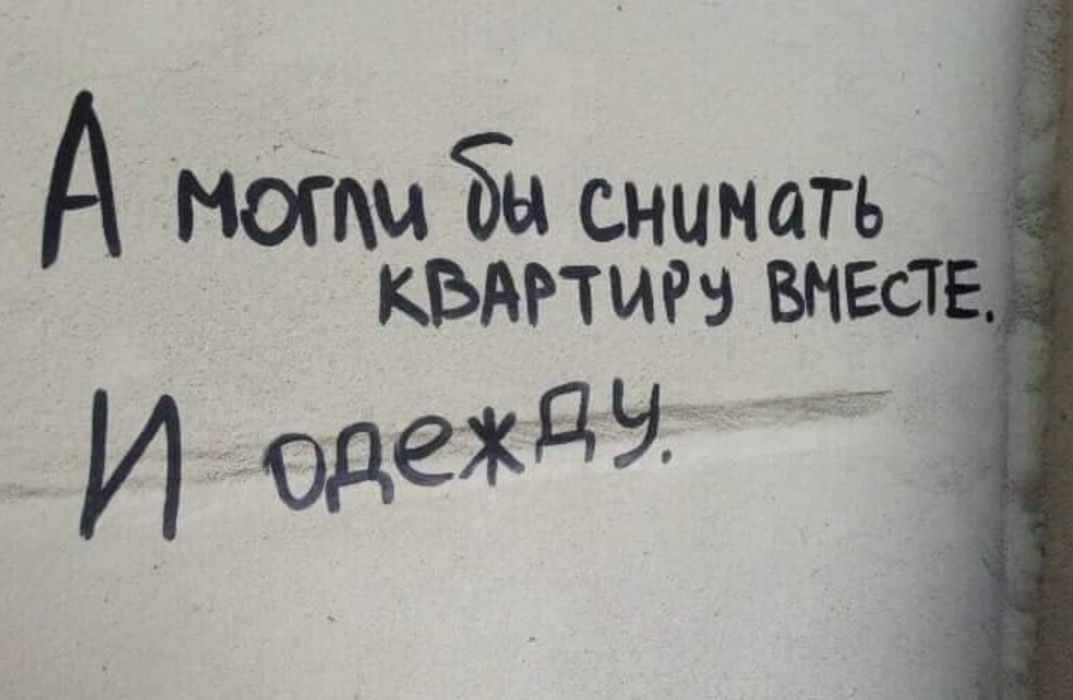 А могли бы снимать
КВАРТИРУ ВМЕСТЕ.
И одежду.